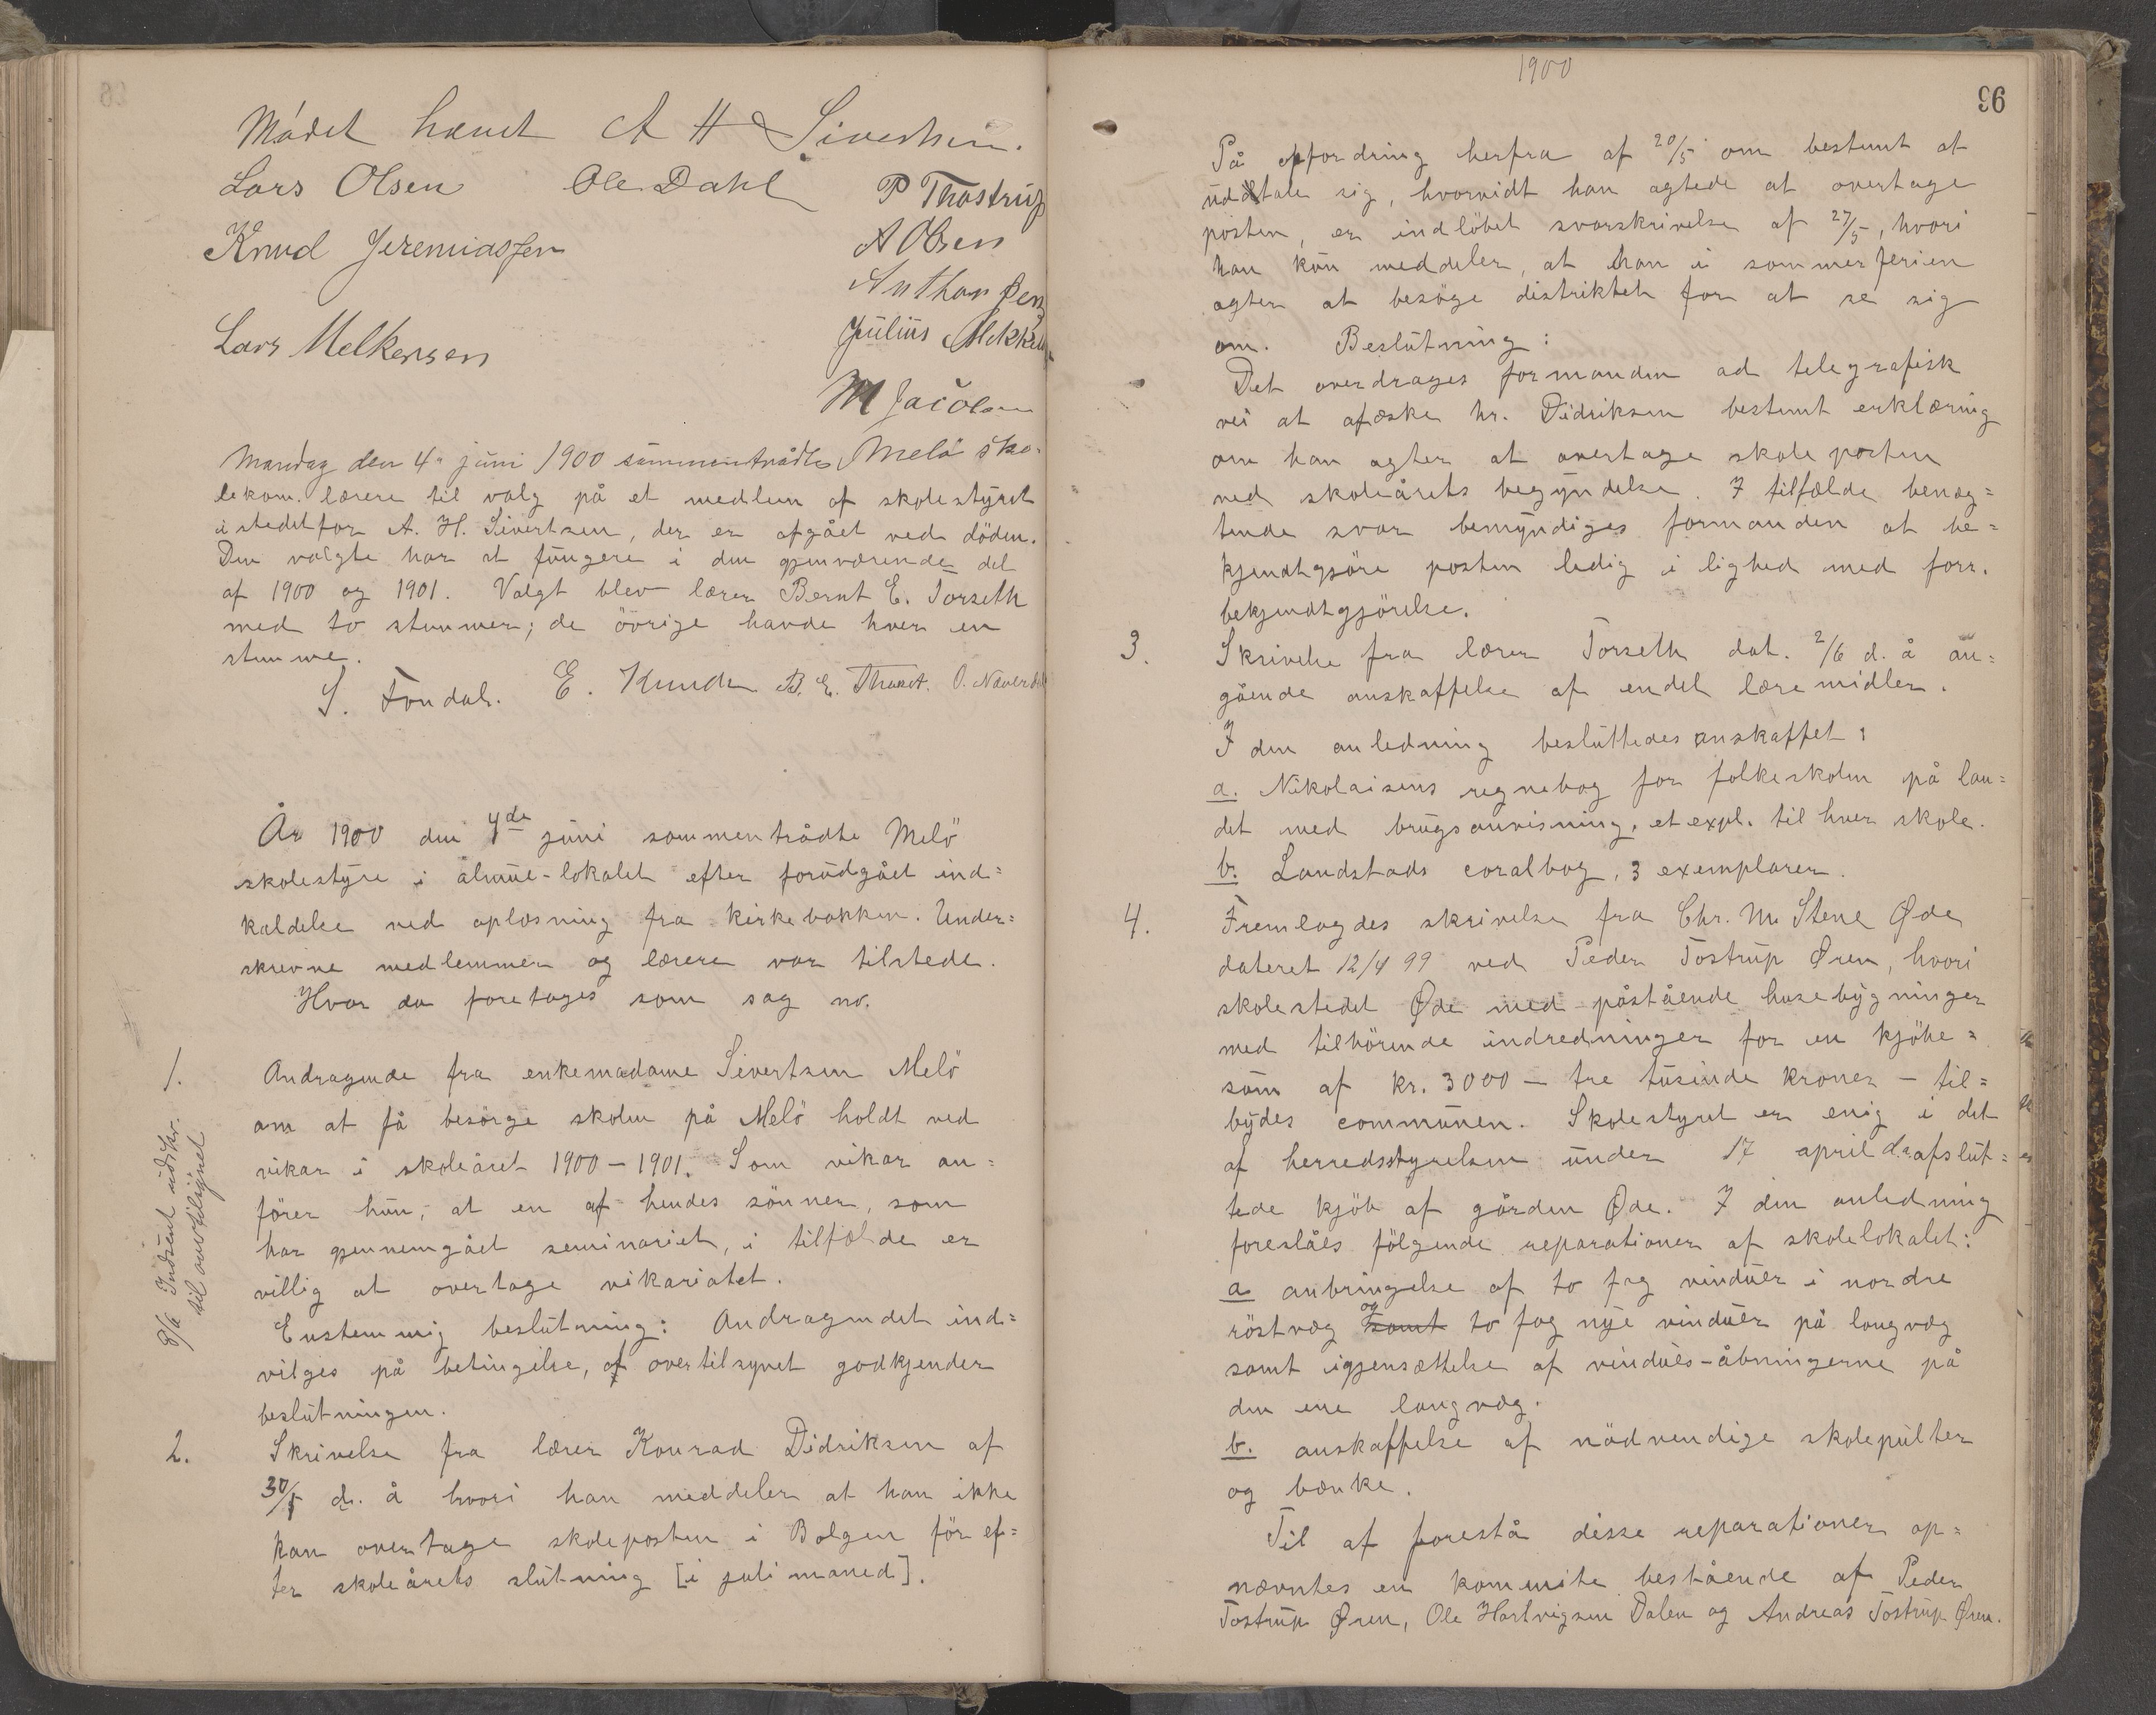 Mødet hævet A H Sivertsen.
Lars Olsen Ole Dahl P Thostrup
Knud Jeremiassen A Olsen
Anthon Jen
Lars Melkersen Julius
M Jacobsen
Mandag den 4. juni 1900 sammentrådte Melö sko-
lekom. lærere til valg på et medlem af skolestyret
istedetfor A. H. Sivertsen, der er afgået ved döden.
Den valgte har at fungere i den gjenværende del
af 1900 og 1901. Valgt blev lærer Bernt E. Torseth
med to stemmer; de övrige havde hver en
stemme.
S. Fondal. E. B. E. Thoset. O. Næverdal
År 1900 den 4de juni sammentrådte Melö
skolestyre i almue-lokalet efter forudgået ind=
kaldelse ved oplæsning fra kirkebakken. Under=
skrevne medlemmer og lærere var tilstede.
Hvor da foretages som sag no.
1. Andragende fra enkemadame Sivertsen Melö
om at få besörge skolen på Melö holdt ved
vikar i skoleåret 1900-1901. Som vikar an=
förer hun, at en af hendes sönner, som
har gjennemgået seminariet, i tilfælde er
villig at overtage vikariatet.
Enstemmig beslutning: Andragendet ind=
vilges på betingelse, af overtilsynet godkjender
beslutningen.
8/6 Indsent udskr.
til overtilsynet
2. Skrivelse fra lærer Konrad Didriksen af
30/5 d. å hvori han meddeler at han ikke
kan overtage skoleposten i Bolgen för ef=
ter skoleårets slutning [i juli maned].
1900
96
På opfordring herfra af 20/5 om bestemt at
udtale sig, hvorvidt han agtede at overtage
posten, er indlöbet svarskrivelse af 27/5, hvori
han kun meddeler, at han i sommerferien
agter at besöge distriktet for at se sig
om. Beslutning:
Det overdrages formanden ad telegrafisk
vei at afæske hr. Didriksen bestemt erklæring
om han agter at overtage skoleposten
ved skoleårets begyndelse. I tilfælde benæg=
tende svar bemyndiges formanden at be=
kjendtgjöre posten ledig i lighed med forr.
bekjendtgjörelse.
3. Skrivelse fra lærer Torseth dat. 2/6 d. å an=
gående anskaffelse af endel læremidler.
I den anledning besluttedes anskaffet:
a. Nikolaisens regnebog for folkeskolen på lan=
det med brugsanvisning, et expl. til hver skole.
b. Landstads coralbog, 3 exemplarer.
4. Fremlagdes skrivelse fra Chr. M. Stene Øde
dateret 12/4 99 ved Peder Tostrup Øren, hvori
skolestedet Øde med påstående husebygninger
med tilhörende indredninger for en kjöbe=
sum af kr. 3000 - tre tusinde kroner - til=
bydes communen. Skolestyret er enig i det
af herredsstyrelsen under 17 april d.å. afslut=
tede kjöb af gården Øde. I den anledning
foreslåes fölgende reparationer af skolelokalet:
a anbringelse af to fag vinduer i nordre
röstvæg samt og to fag nye vinduer på langvæg
samt igjensættelse af vindues-åbningerne på
den ene langvæg.
b. anskaffelse af nödvendige skolepulter
og bænke.
Til af forestå disse reparationer op=
nævntes en kommite bestående af Peder
Tostrup Øren, Ole Hartvigsen Dalen og Andreas Tostrup Øren.